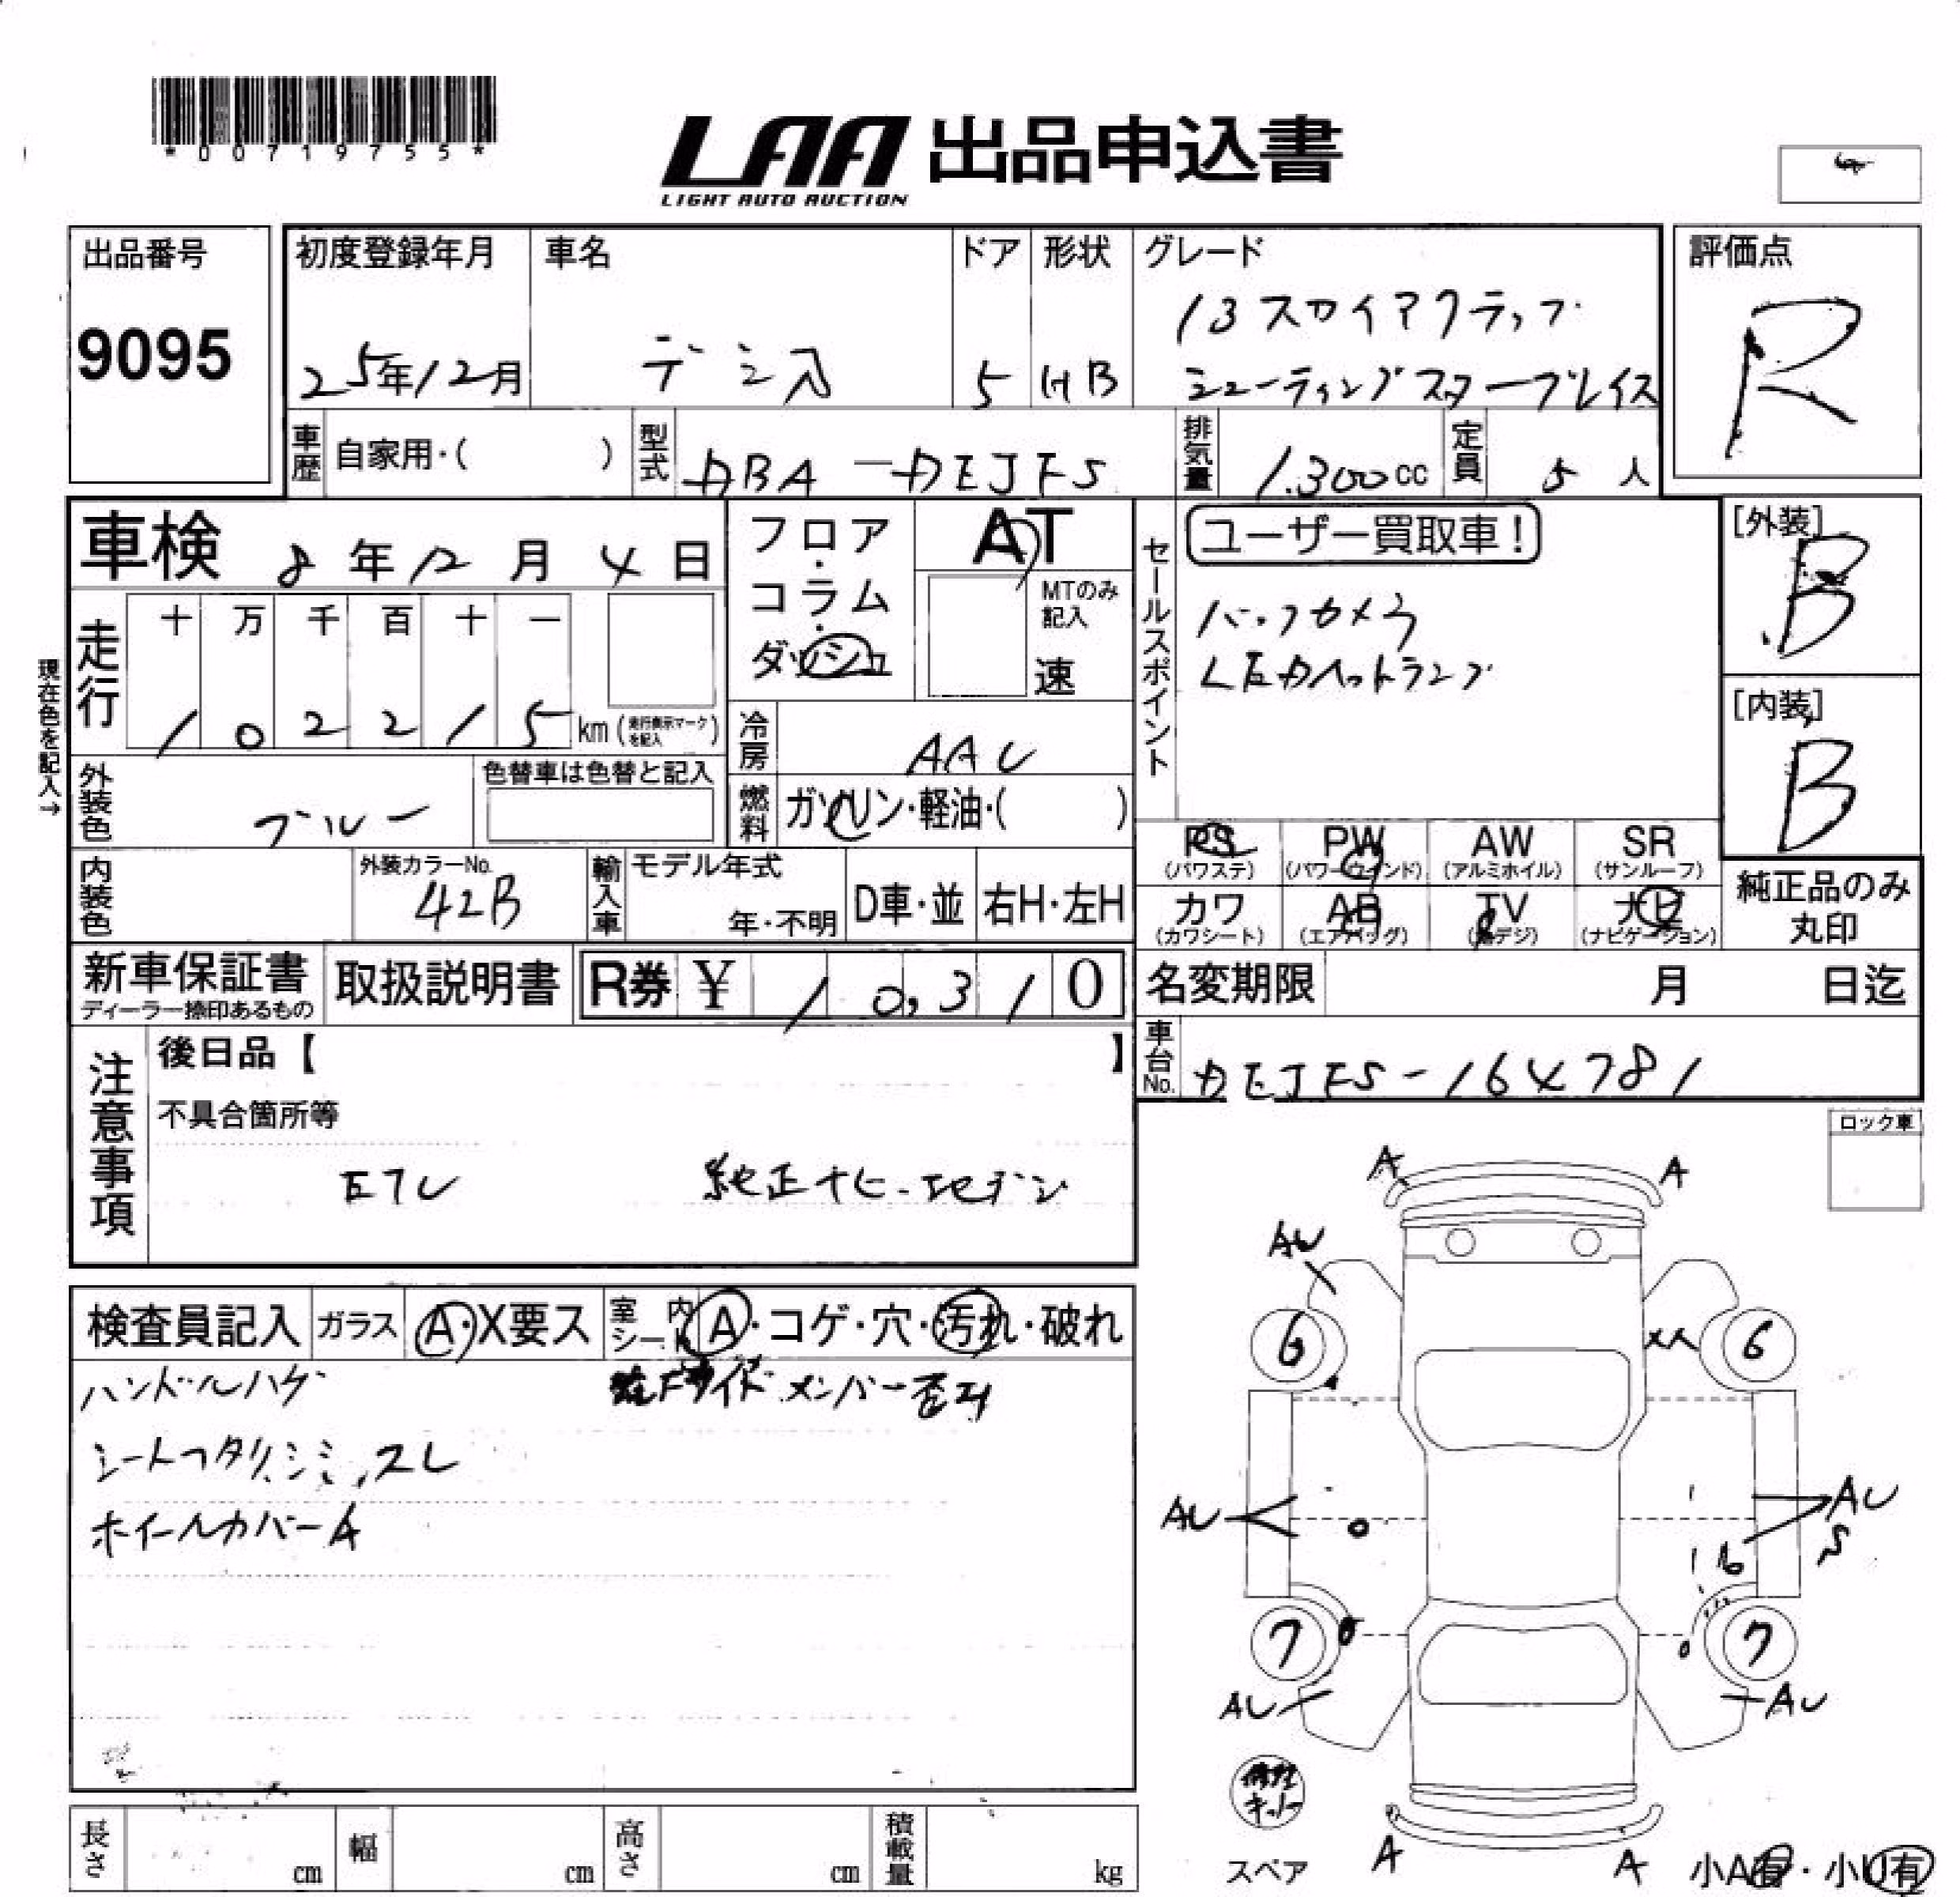 *00719755*
LAA 出品申込書
LIGHT AUTO AUCTION
出品番号
9095
初度登録年月
25年12月
車名
デミオ
ドア
5
形状
HB
グレード
13スカイアクティブ
シューティングスタープレイス
評価点
R
車歴 自家用・( )
型式 DBA-DEJFS
排気量 1.300cc
定員 5人
車検 8年12月4日
フロア・コラム・ダッシュ
AT
MTのみ記入
速
セールスポイント
ユーザー買取車!
バックカメラ
LEDヘッドランプ
[外装]
B
[内装]
B
現在色を記入→
走行
十 万 千 百 十 一
1 0 2 2 1 5 km (走行表示マークを記入)
冷房 AAC
外装色 ブルー
色替車は色替と記入
燃料 ガソリン・軽油・( )
内装色
外装カラーNo.
42B
輸入車
モデル年式
年・不明
D車・並
右H・左H
PS (パワステ)
PW (パワーウインド)
AW (アルミホイル)
SR (サンルーフ)
カワ (カワシート)
AB (エアバッグ)
TV (地デジ)
ナビ (ナビゲーション)
純正品のみ丸印
新車保証書
ディーラー捺印あるもの
取扱説明書
R券 ¥ 10,310
名変期限 月 日迄
車台No. DEJFS-164781
注意事項
後日品【 】
不具合箇所等
ETC 純正ナビ
ロック車
検査員記入
ガラス A・X要ス
室内シート A・コゲ・穴・汚れ・破れ
ハンドルハゲ
メンバー
シートヘタリ、シミ、スレ
ホイールカバーA
A A
AU
6 6
AU AU
S
7 7
AU AU
修理キット
スペア
A A
小A有・小U有
長さ cm
幅 cm
高さ cm
積載量 kg